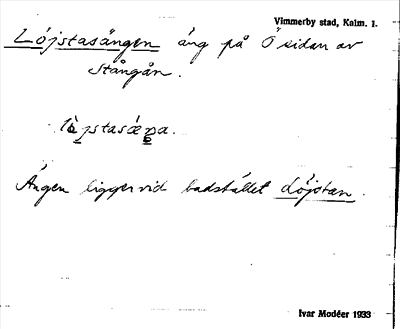 Vimmerby stad, Kalm. l.
Lójstasängen äng på Ö sidan av
Stångån.
Ängen ligger vid badstället Löjstan.
Ivar Modéer 1933